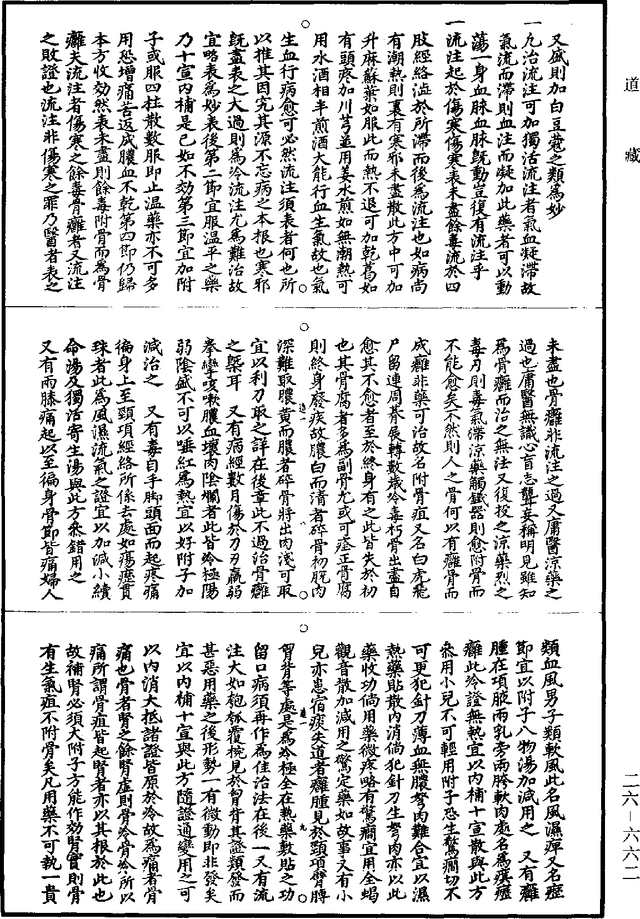 道藏
又盛則加白豆蔻之類爲妙
一凢治流注可加獨活流注者氣血凝滯故
氣流而滯則血注而凝加此藥者可以動
蕩一身血脉血脉旣動豈復有流注乎
一流注起於傷寒傷寒表未盡餘毒流於四
肢經絡澁於所滯而後爲流注也如病尚
有潮熱則裏有寒邪未盡散此方中可加
升麻蘇葉如服此而熱不退可加乾葛如
有頭疼加川芎並用姜水煎如無潮熱可
用水酒相半煎酒大能行血生氣故也氣
生血行病愈可必然流注須表者何也所
以推其因究其源不忘病之本根也寒邪
旣盡表之大過則爲冷流注尤爲難治故
宜略表爲妙表後第二節宜服温平之藥
乃十宣內補是已如不効第三節宜加附
子或服四柱散數服即止温藥亦不可多
用恐增痛苦返成膿血不乾第四節仍歸
本方收効然表未盡則餘毒附骨而爲骨
癰夫流注者傷寒之餘毒骨癰者又流注
之敗證也流注非傷寒之罪乃醫者表之
未盡也骨癰非流注之過又庸醫凉藥之
過也庸醫無識心盲志聾妄稱明見雖知
爲骨癰而治之無法又復投之凉藥烈之
毒刃則毒氣滯涼藥觸鐵器則愈附骨而
不能愈矣不然則人之骨何以有癰骨而
成癰非藥可治故名附骨疽又名白虎飛
尸留連周朞展轉數歲冷毒朽骨出盡自
愈其不愈者至於終身有之此皆失於初
也其骨腐者多爲副骨尤或可痊正骨腐
則終身廢疾故膿白而清者碎骨初脫肉
深難取膿黃而膿者碎骨將出肉淺可取
宜以利刀取之詳在後章此不過治骨癰
之槩耳　又有病經數月傷於刀刃羸弱
拳攣咳嗽膿血壞肉陰爛者此皆冷極陽
弱陰盛不可以唾紅爲熱宜以好附子加
減治之　又有毒自手脚頭面而起疼痛
徧身上至頸項經絡所係去處如瘍癧貫
珠者此爲風濕流氣之證宜以加減小續
命湯及獨活寄生湯與此方叅錯用之
又有兩膝痛起以至徧身骨節皆痛婦人
類血風男子類軟風此名風濕痺又名痙
節宜以附子八物湯加減用之　又有癰
腫在項腋兩乳旁兩胯軟肉處名爲㾕癧
癰此冷證無熱宜以內補十宣散與此方
叅用小兒不可輕用附子恐生驚癇切不
可更犯針刀薄血無膿努肉難合宜以濕
熱藥貼散內消倘犯針刀生努肉亦以此
藥收功倘用藥微疾略有驚癇宜用全蝎
觀音散加減用之驚定藥如故事又有小
兒亦患宿痰失道者癰腫見於頸項臂膊
胷背等處是爲冷極全在熱藥敷貼之功
留口病須再作爲佳治法在後一又有流
注大如匏瓠覆椀見於胷背其證頹發而
甚惡用藥之後形勢一有微動即非發矣
宜以內補十宣與此方隨證通變用之可
以內消大抵諸證皆原於冷故爲痛者骨
痛也骨者腎之餘腎虛則骨冷骨冷所以
痛所謂骨疽皆起腎者亦以其根於此也
故補腎必須大附子方能作効腎實則骨
有生氣疽不附骨矣凡用藥不可執一貴
二六－六六二